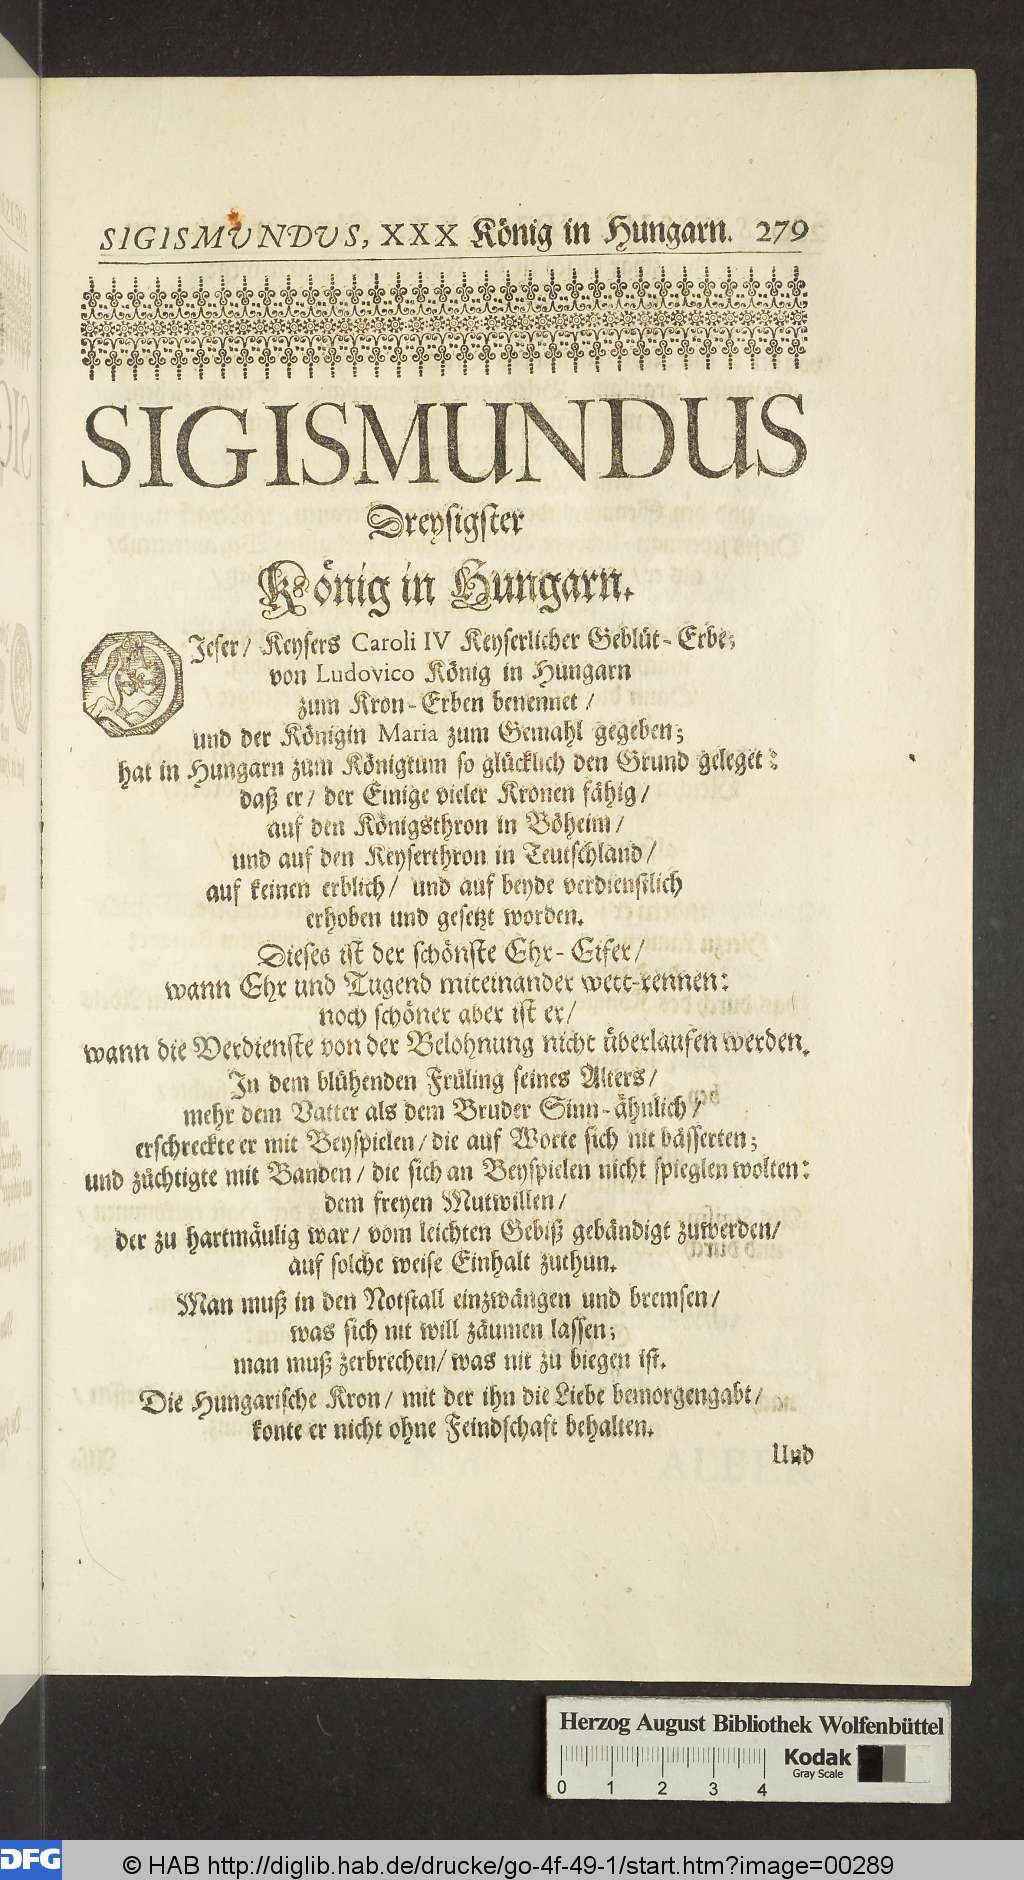 SIGISMUNDUS, XXX König in Hungarn. 279
SIGISMUNDUS
Dreysigster
König in Hungarn.
DIeser/ Keysers Caroli IV Keyserlicher Geblüt-Erbe;
von Ludovico König in Hungarn
zum Kron-Erben benennet/
und der Königin Maria zum Gemahl gegeben;
hat in Hungarn zum Königtum so glücklich den Grund geleget:
daß er/ der Einige vieler Kronen fähig/
auf den Königsthron in Böheim/
und auf den Keyserthron in Teutschland/
auf keinen erblich/ und auf beyde verdienstlich
erhoben und gesetzt worden.
Dieses ist der schönste Ehr-Eifer/
wann Ehr und Tugend miteinander wett-rennen:
noch schöner aber ist er/
wann die Verdienste von der Belohnung nicht überlaufen werden.
In dem blühenden Früling seines Alters/
mehr dem Vatter als dem Bruder Sinn-ähnlich/
erschreckte er mit Beyspielen/ die auf Worte sich nit bässerten;
und züchtigte mit Banden/ die sich an Beyspielen nicht spieglen wolten:
dem freyen Mutwillen/
der zu hartmäulig war/ vom leichten Gebiß gebändigt zuwerden/
auf solche weise Einhalt zuthun.
Man muß in den Notstall einzwängen und bremsen/
was sich nit will zäumen lassen;
man muß zerbrechen/ was nit zu biegen ist.
Die Hungarische Kron/ mit der ihn die Liebe bemorgengabt/
konte er nicht ohne Feindschaft behalten.
Und
Herzog August Bibliothek Wolfenbüttel
Kodak
Gray Scale
0 1 2 3 4
DFG
© HAB http://diglib.hab.de/drucke/go-4f-49-1/start.htm?image=00289